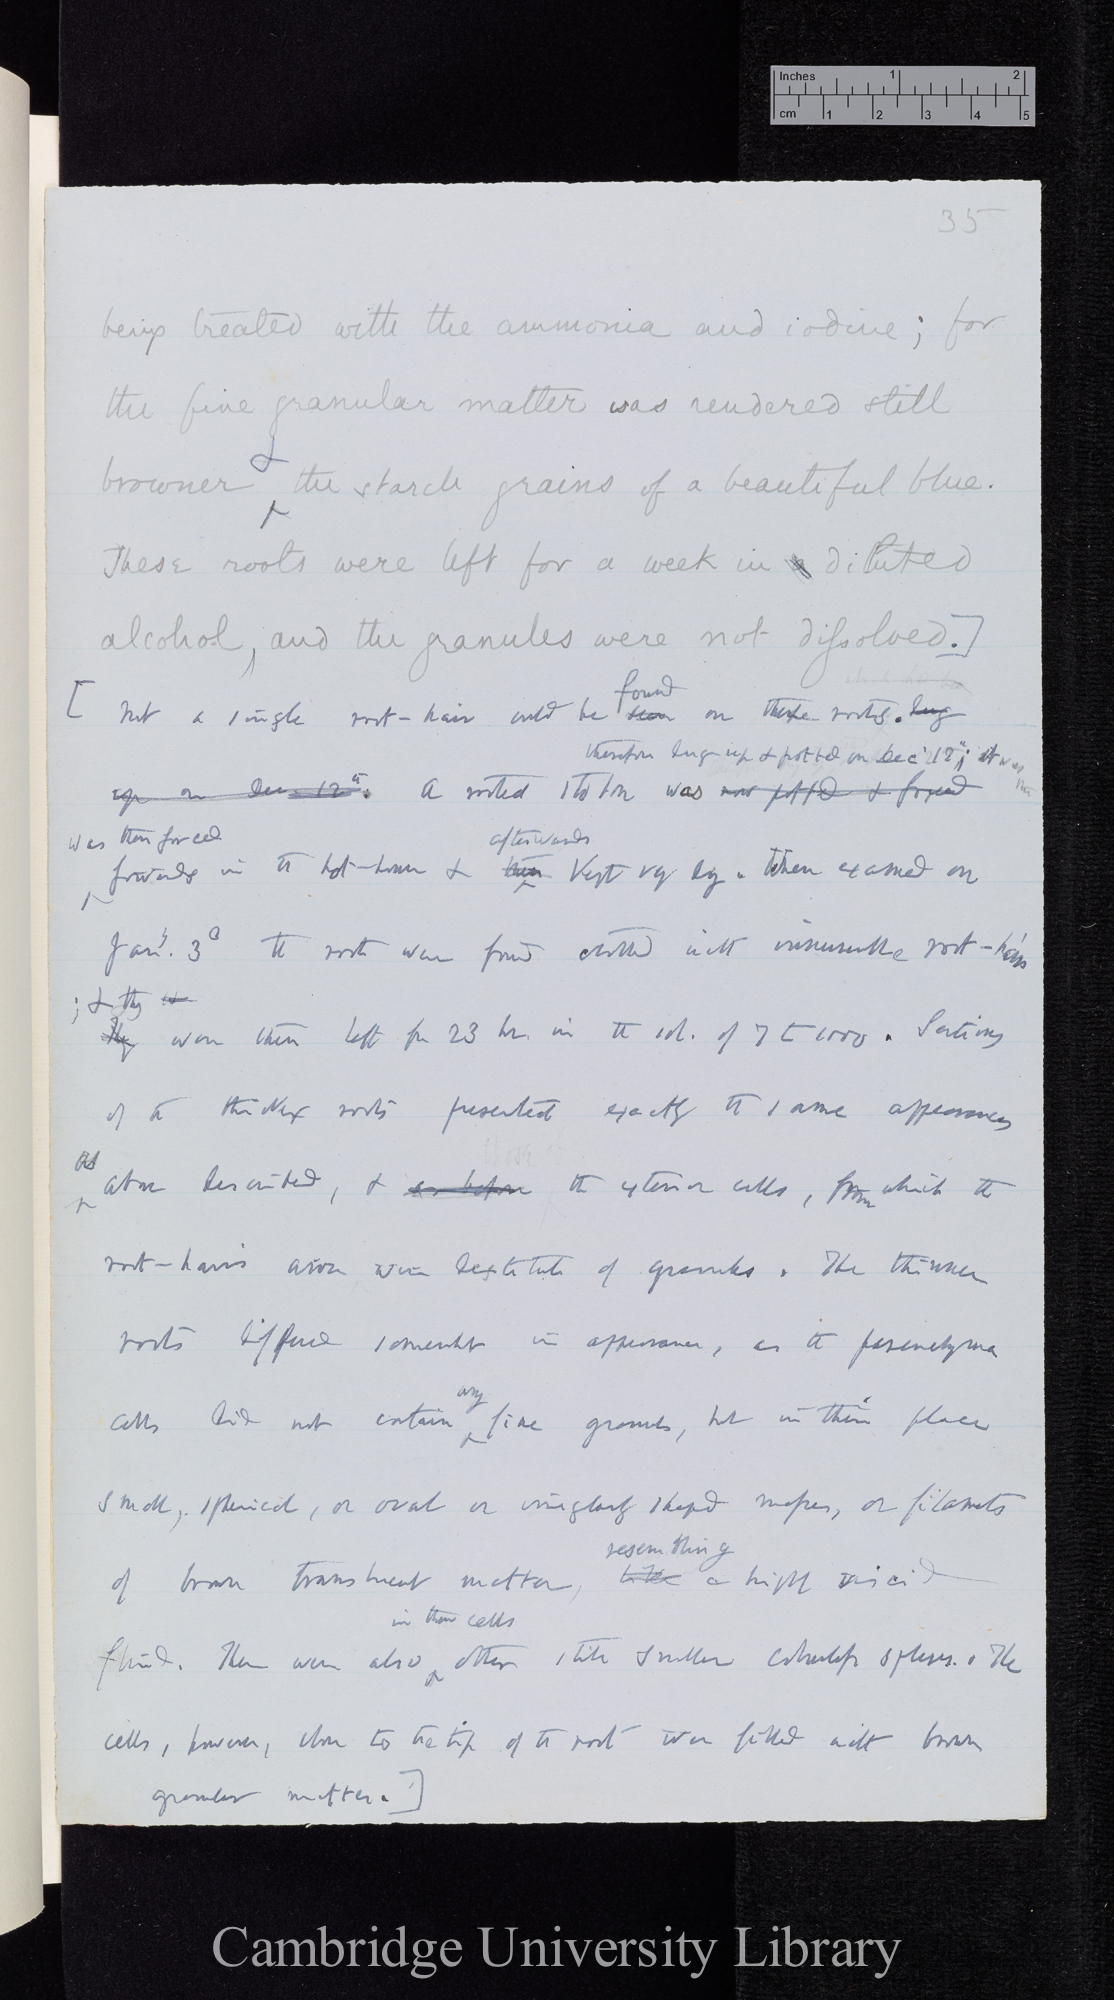 Inches 1 2
cm 1 2 3 4 5
35
being treated with the ammonia and iodine; for
the fine granular matter was rendered still
&
browner the starch grains of a beautiful blue.
These roots were left for a week in a diluted
alcohol, and the granules were not dissolved.]
found
[ Not a single root-hair could be seen on these roots. dug
therefore dug up & potted on Dec 12th; it was
up on Dec 12th. A rooted stolon was now potted & forced
was then forced afterwards
forwards in the hot-house & then kept very dry. When examined on
Jany. 3d the roots were found clothed with innumerable root-hairs
; & they
they were then left for 23 hr. in the sol. of 7 to 1000. Sections
of the thicker roots presented exactly the same appearances
as
above described, & as before the exterior cells, from which the
root-hairs arose were destitute of granules. The thinner
roots differed somewhat in appearance, as the parenchyma
any
cells did not contain fine granules, but in their place
small, spherical, or oval or irregularly shaped masses, or filaments
resembling
of brown translucent matter, like a highly viscid
in these cells
fluid. There were also other still smaller colourless spheres. The
cells, however, close to the tip of the root were filled with brown
granular matter.]
Cambridge University Library